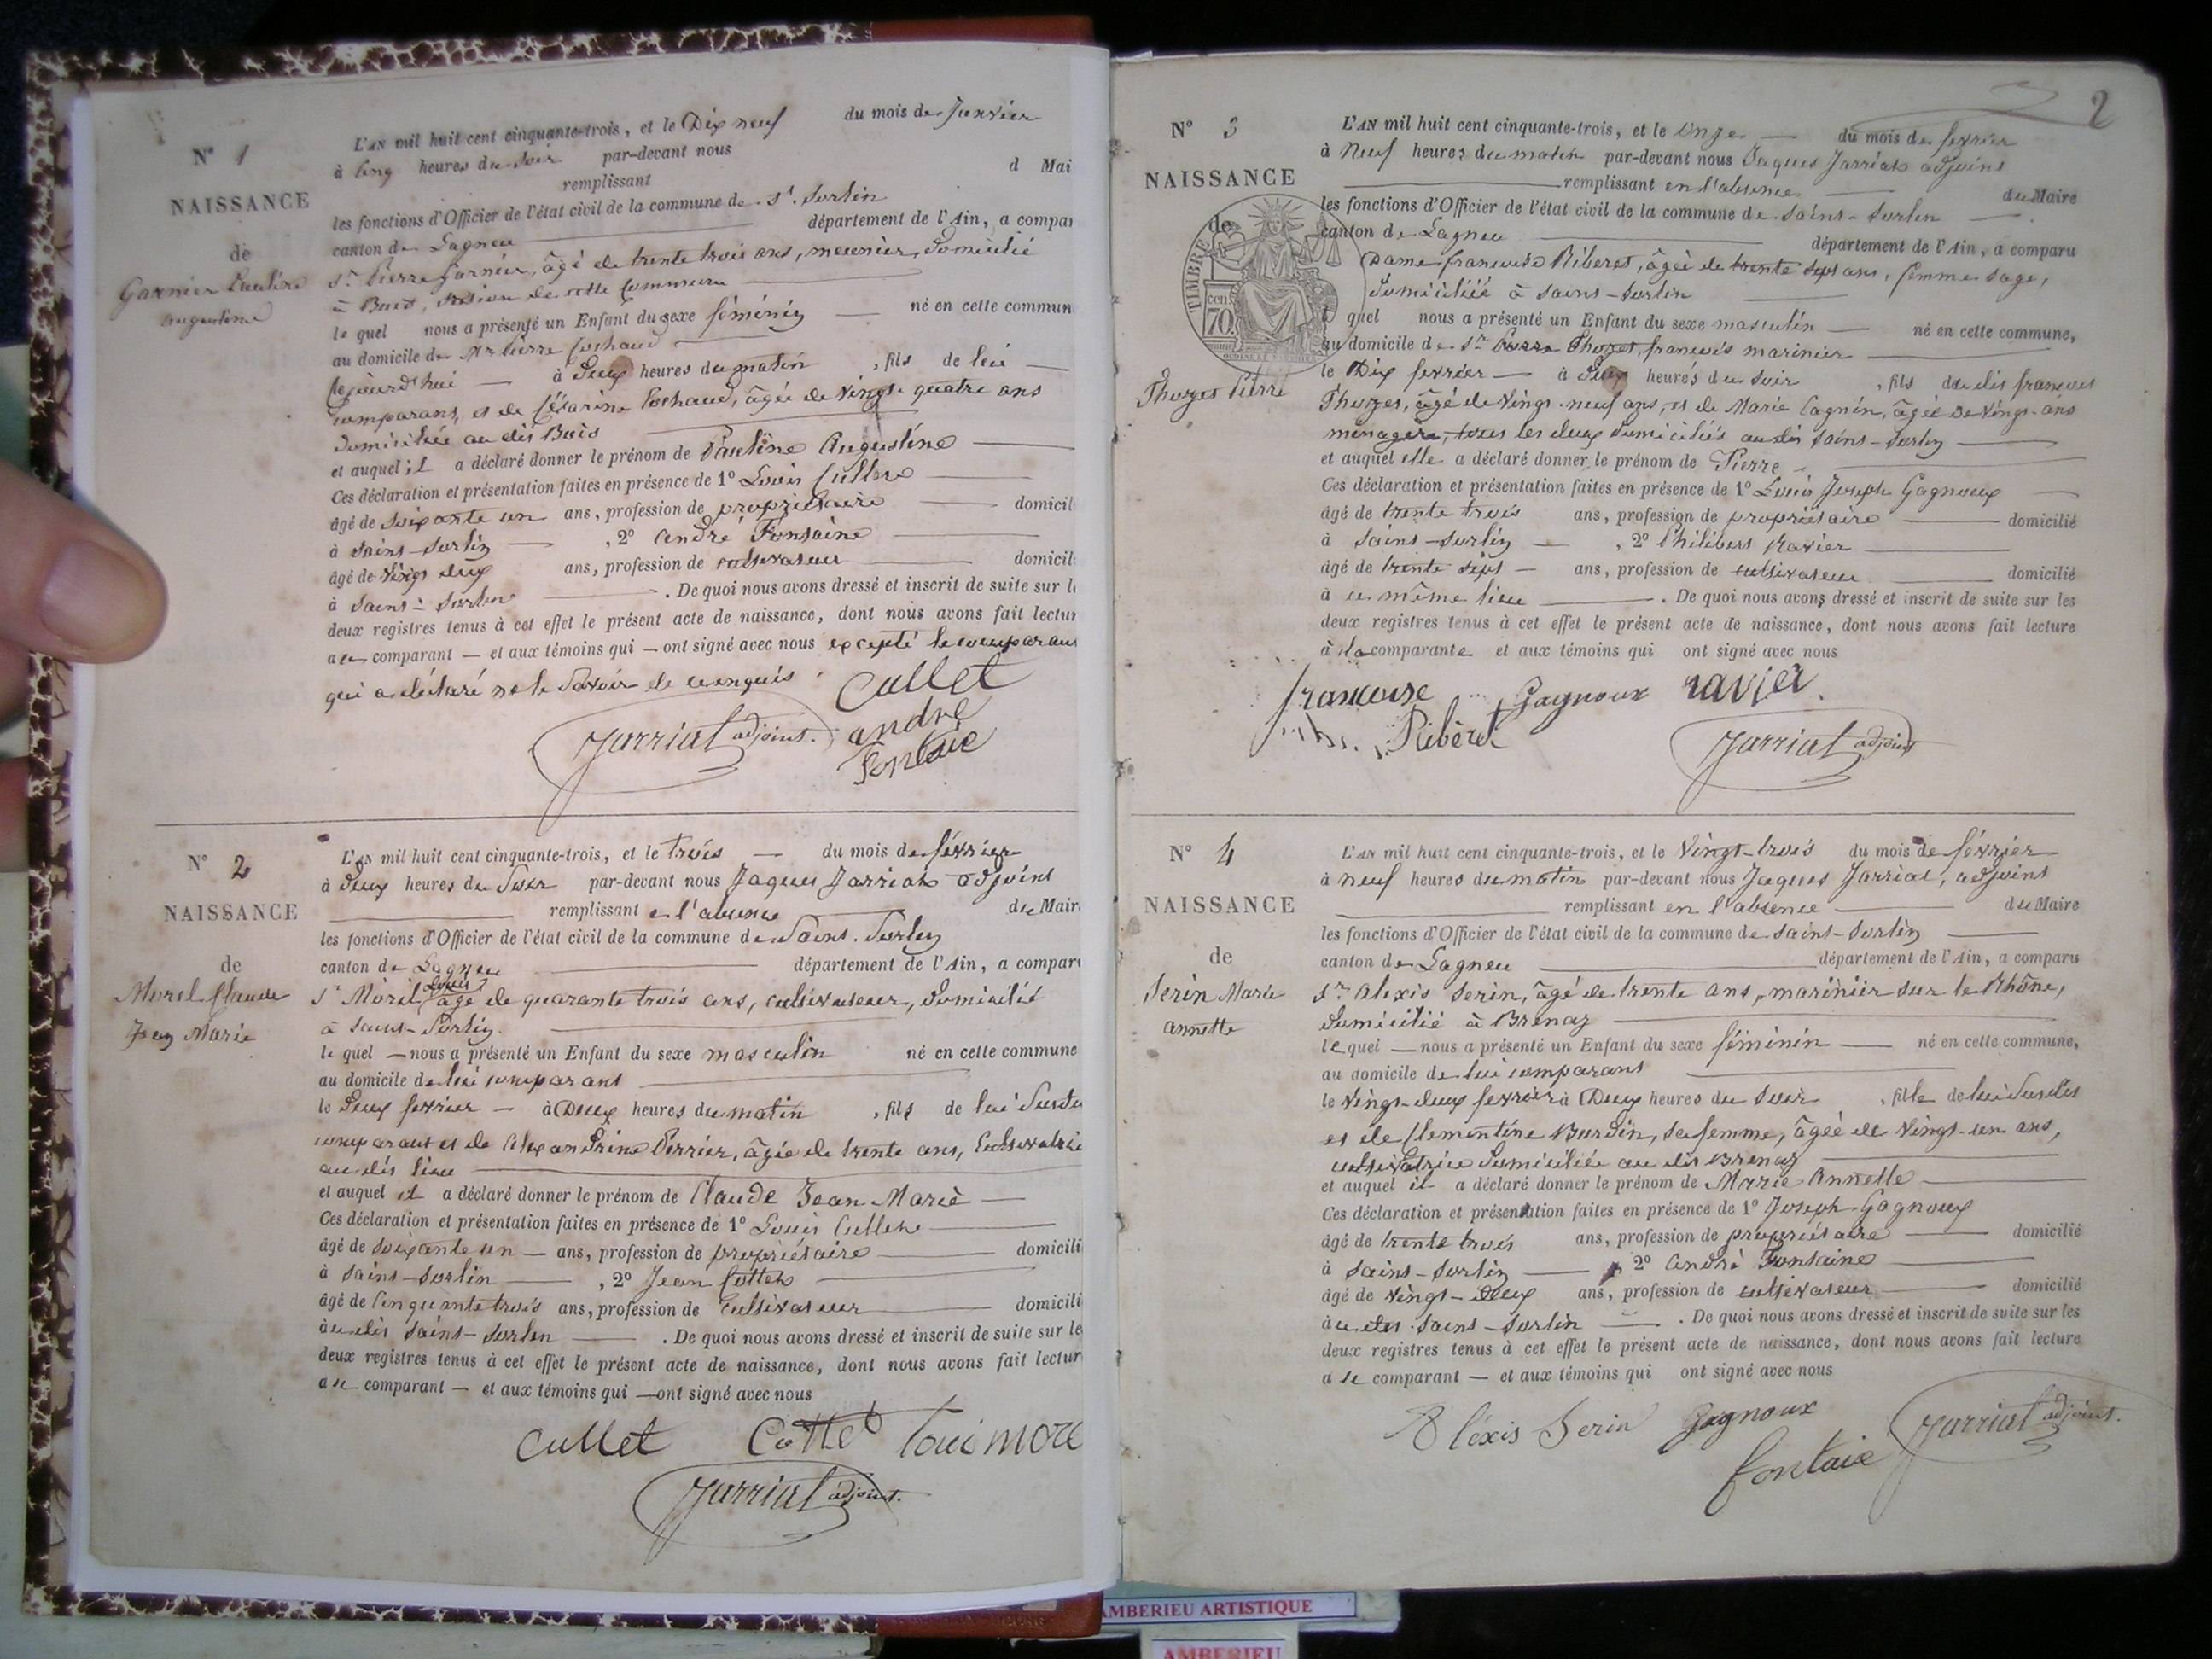 N° 1
NAISSANCE
de
Garnier Pauline
Augustine
L'AN mil huit cent cinquante-trois, et le Dix neuf du mois de Janvier
à Cinq heures du soir par-devant nous
d Mai
remplissant
les fonctions d'Officier de l'état civil de la commune de St. Sorlin
canton de Lagneu département de l'Ain, a compar
Sr. Pierre Garnier, âgé de trente trois ans, meunier, domicilié
à Buis, de cette commune
le quel nous a présenté un Enfant du sexe féminin né en cette commun
au domicile de Mr Pierre Cochaud
Ce jourd'hui à Deux heures du matin , fils de lui
comparant, et de Césarine Cochaud, âgée de Vingt quatre ans
domiciliée au dit Buis
et auquel il a déclaré donner le prénom de Pauline Augustine
Ces déclaration et présentation faites en présence de 1° Louis Cullet
âgé de soixante un ans, profession de propriétaire domicil
à Saint-Sorlin , 2° André Fontaine
âgé de Vingt deux ans, profession de cultivateur domicil
à Saint-Sorlin . De quoi nous avons dressé et inscrit de suite sur l
deux registres tenus à cet effet le présent acte de naissance, dont nous avons fait lectur
au comparant et aux témoins qui ont signé avec nous excepté le comparant
qui a déclaré ne le savoir de ce enquis
Cullet
Jarriat adjoint. andre
fontaie
N° 2
NAISSANCE
de
Morel Claude
Jean Marie
L'AN mil huit cent cinquante-trois, et le trois du mois de février
à Deux heures du Soir par-devant nous Jaques Jarriat adjoint
remplissant en l'absence du Mair
les fonctions d'Officier de l'état civil de la commune de Saint-Sorlin
canton de Lagneu département de l'Ain, a compar
Louis
Sr Morel, âgé de quarante trois ans, cultivateur, domicilié
à Saint-Sorlin
le quel nous a présenté un Enfant du sexe masculin né en cette commune
au domicile de lui comparant
le Deux février à Deux heures du matin , fils de lui susdit
comparant et de Alexandrine Perrier, âgée de trente ans, Cultivatrice
au dit lieu
et auquel il a déclaré donner le prénom de Claude Jean Marie
Ces déclaration et présentation faites en présence de 1° Louis Cullet
âgé de soixante un ans, profession de propriétaire domicili
à Saint-Sorlin , 2° Jean Cottet
âgé de Cinquante trois ans, profession de Cultivateur domicili
à au dit Saint-Sorlin . De quoi nous avons dressé et inscrit de suite sur le
deux registres tenus à cet effet le présent acte de naissance, dont nous avons fait lectur
au comparant et aux témoins qui ont signé avec nous
Cullet Cottet Loui more
Jarriat adjoint.
2
N° 3
NAISSANCE
de
TIMBRE
70 cen.
Thozet Pierre
L'AN mil huit cent cinquante-trois, et le Onze du mois de février
à Neuf heures du matin par-devant nous Jaques Jarriat adjoint
remplissant en l'absence du Maire
les fonctions d'Officier de l'état civil de la commune de Saint-Sorlin
canton de Lagneu département de l'Ain, a comparu
Dame françoise Riberet, âgée de trente sept ans, femme sage,
domiciliée à Saint-Sorlin
le quel nous a présenté un Enfant du sexe masculin né en cette commune,
au domicile de Sr Pierre Thozet, françois marinier
le Dix février à Deux heures du soir , fils du dit françois
Thozet, âgé de Vingt-neuf ans, et de Marie Cagnin, âgée de Vingt ans
ménagère, tous les deux domiciliés au dit Saint-Sorlin
et auquel elle a déclaré donner le prénom de Pierre
Ces déclaration et présentation faites en présence de 1° Louis Joseph Gagnoux
âgé de trente trois ans, profession de propriétaire domicilié
à Saint-Sorlin , 2° Philibert Ravier
âgé de trente sept ans, profession de cultivateur domicilié
à ce même lieu . De quoi nous avons dressé et inscrit de suite sur les
deux registres tenus à cet effet le présent acte de naissance, dont nous avons fait lecture
à la comparante et aux témoins qui ont signé avec nous
francoise Gagnoux ravier
Ribéret
Jarriat adjoint
N° 4
NAISSANCE
de
Serin Marie
Annette
L'AN mil huit cent cinquante-trois, et le Vingt-trois du mois de février
à neuf heures du matin par-devant nous Jaques Jarriat, adjoint
remplissant en l'absence du Maire
les fonctions d'Officier de l'état civil de la commune de Saint-Sorlin
canton de Lagneu département de l'Ain, a comparu
Sr. Alexis Serin, âgé de trente ans, marinier sur le Rhône,
domicilié à Brenaz
le quel nous a présenté un Enfant du sexe féminin né en cette commune,
au domicile de lui comparant
le Vingt-deux février à Deux heures du Soir , fille de lui susdit
et de Clementine Burdin, sa femme, âgée de Vingt-un ans,
cultivatrice domiciliée au dit Brenaz
et auquel il a déclaré donner le prénom de Marie Annette
Ces déclaration et présentation faites en présence de 1° Joseph Gagnoux
âgé de trente trois ans, profession de propriétaire domicilié
à Saint-Sorlin , 2° André Fontaine
âgé de Vingt-Deux ans, profession de cultivateur domicilié
à au dit Saint-Sorlin . De quoi nous avons dressé et inscrit de suite sur les
deux registres tenus à cet effet le présent acte de naissance, dont nous avons fait lecture
au comparant et aux témoins qui ont signé avec nous
Aléxis Serin Gagnoux Jarriat adjoint.
fontaie
AMBERIEU ARTISTIQUE
AMBERIEU